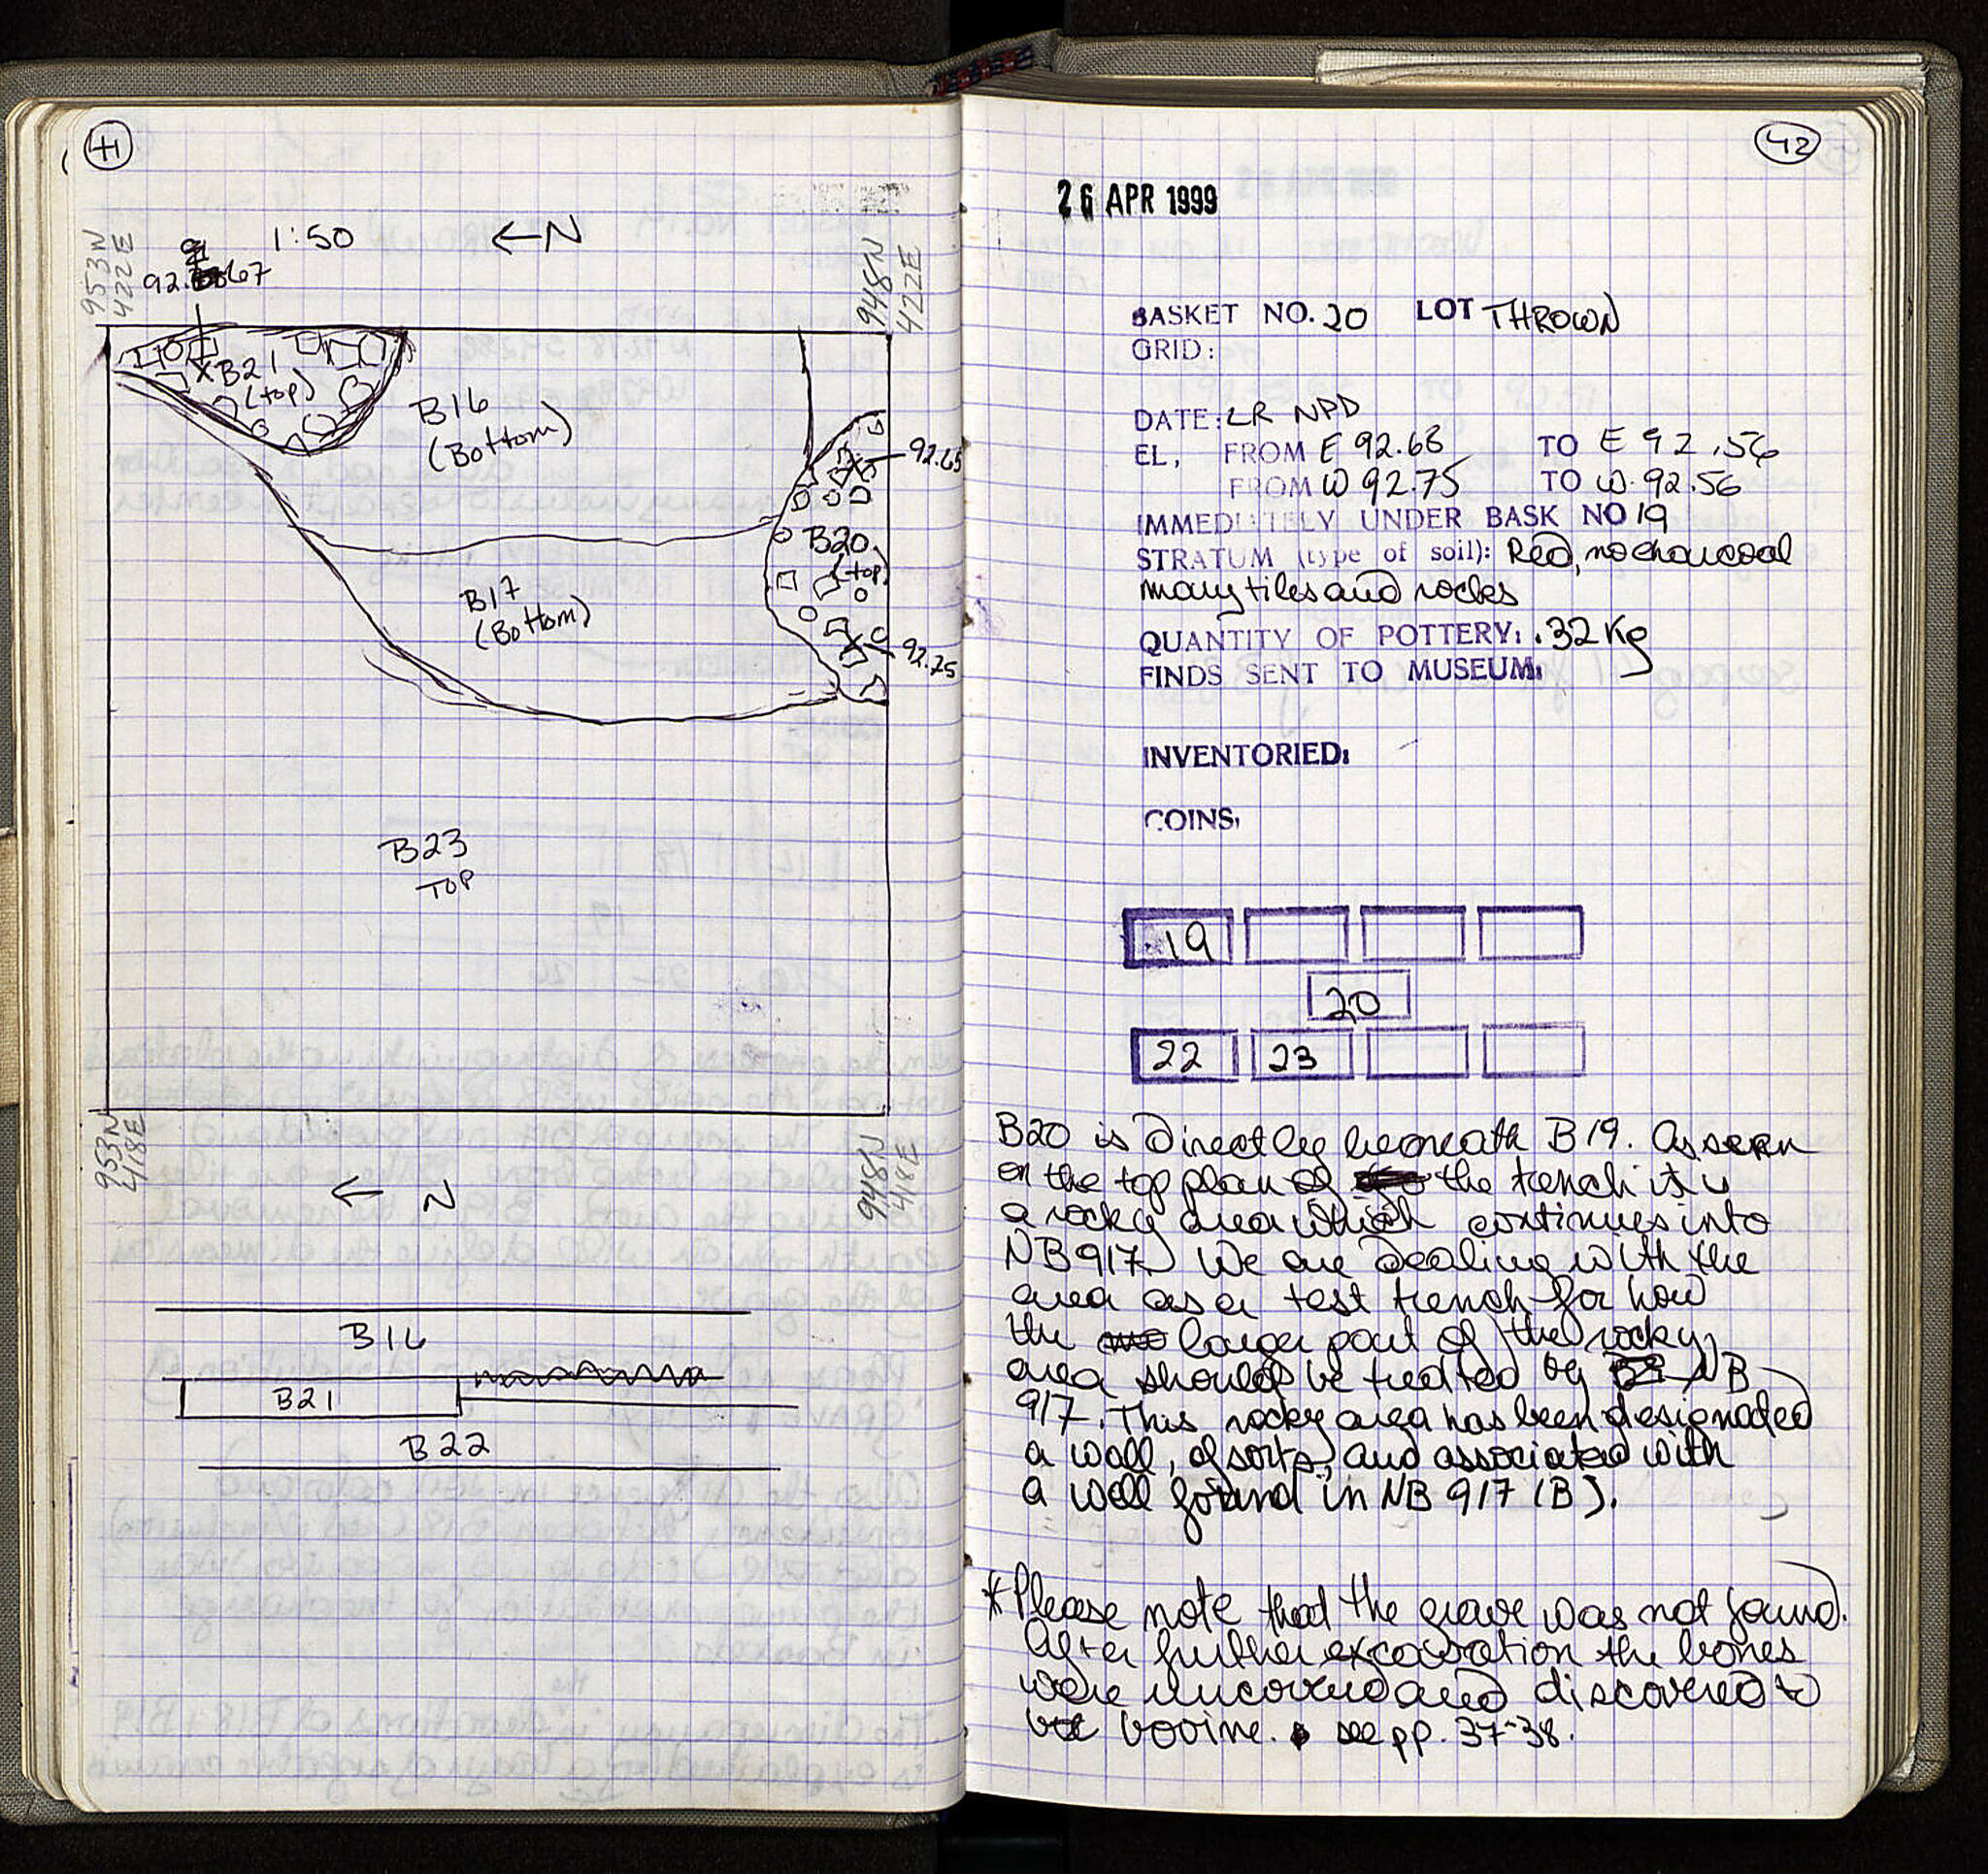 41
1:50 ←N
953N
422E
948N
422E
92.67
B21
(top)
B16
(Bottom)
92.65
B20
(top)
B17
(Bottom)
92.75
B23
TOP
953N
418E
948N
418E
← N
B16
B21
B22
42
26 APR 1999
BASKET NO. 20 LOT THROWN
GRID:
DATE: LR NPD
EL, FROM E 92.68 TO E 92.56
FROM W 92.75 TO W. 92.56
IMMEDIATELY UNDER BASK NO 19
STRATUM (type of soil): Red, no charcoal
many tiles and rocks
QUANTITY OF POTTERY: .32 Kg
FINDS SENT TO MUSEUM:
INVENTORIED:
COINS,
19
20
22 23
B20 is directly beneath B19. As seen
on the top plan of the trench it is
a rocky area which continues into
NB917. We are dealing with the
area as a test trench for how
the larger part of the rocky
area should be treated by NB
917. This rocky area has been designated
a wall, of sorts, and associated with
a well found in NB 917 (B).
*Please note that the grave was not found.
After further excavation the bones
were uncovered and discovered to
be bovine. see pp. 37-38.